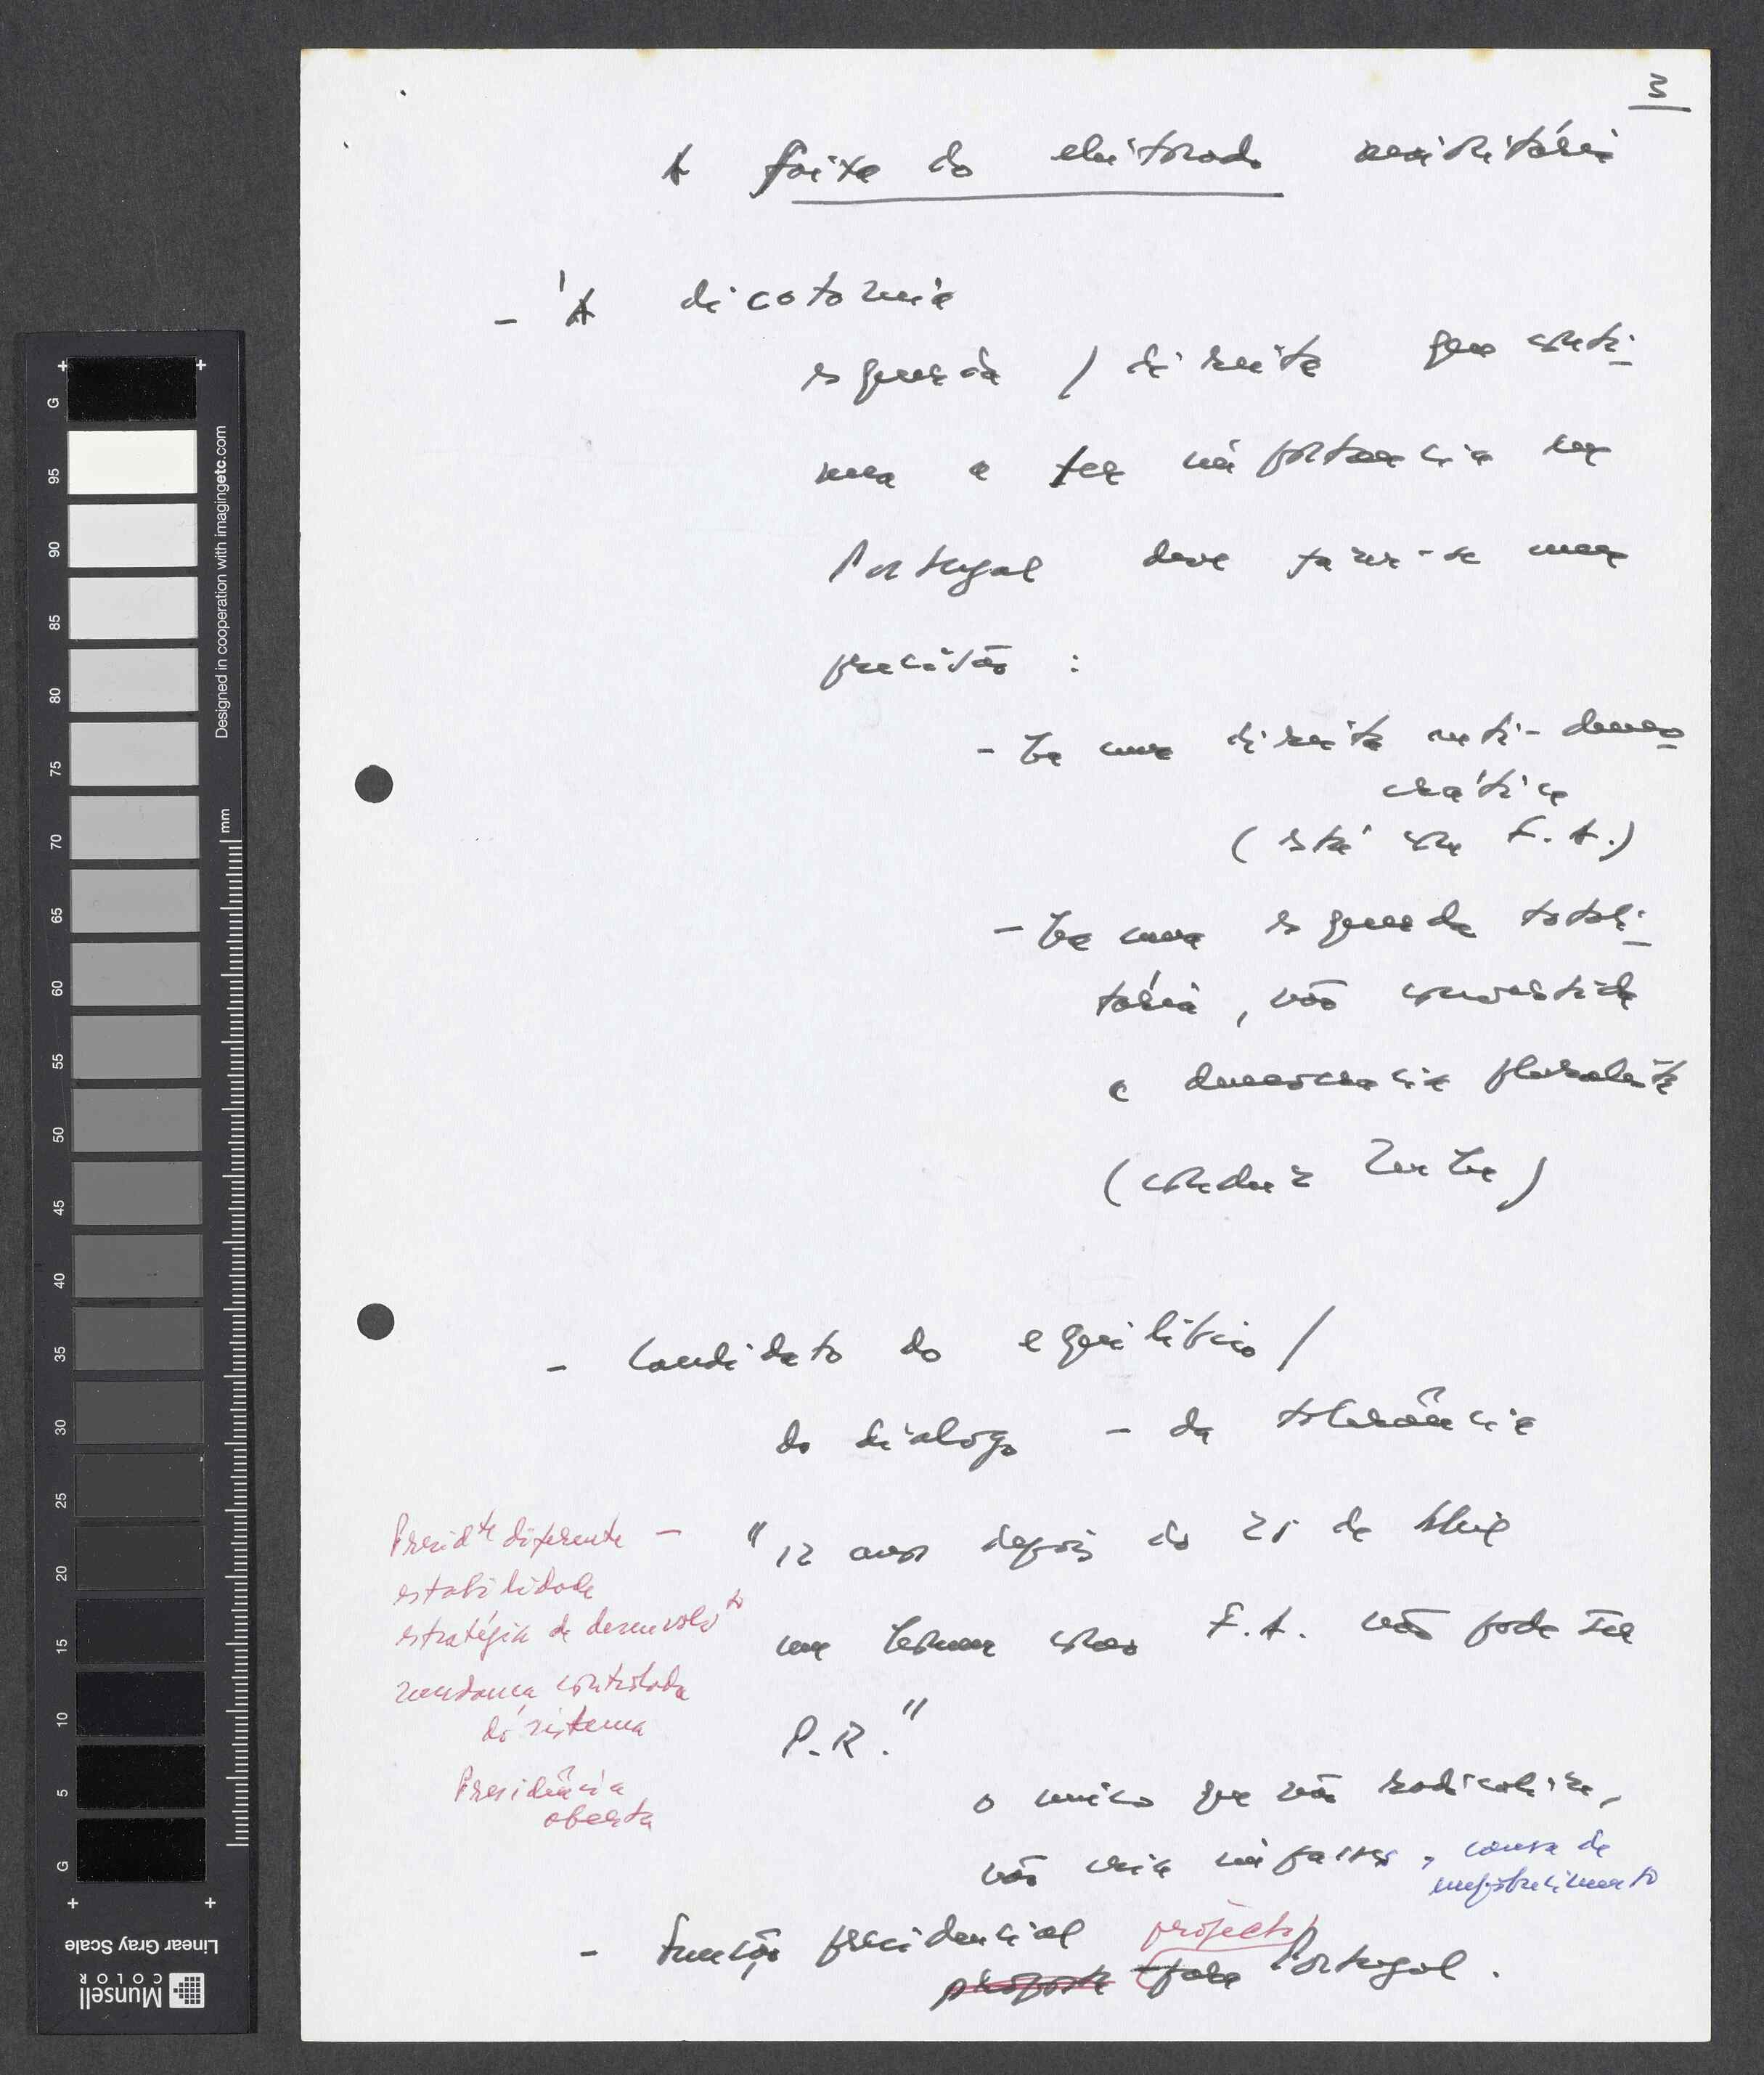 3
A faixa do eleitorado maioritário
- À dicotomia
esquerda / direita que conti-
nua a ter importancia em
Portugal deve fazer-se uma
precisão :
- Há uma direita anti-demo
crática
(está com F. A.)
- Há uma esquerda totali-
tária, não convertida
à democracia pluralista
( )
- Candidato do equilíbrio /
do diálogo - da tolerância
"12 anos depois do 25 de Abril
um homem como F.A. não pode ser
P.R."
o único que não radicaliza,
não cria impasses, causa de
empobrecimento
- Função presidencial projecto
proposta para Portugal.
Presidte diferente -
estabilidade
estratégia de desenvolvto
mudança controlada
do sistema
Presidência
aberta
G
95
90
85
80
75
70
65
60
55
50
45
40
35
30
25
20
15
10
5
G
mm
Designed in cooperation with imagingetc.com
Linear Gray Scale
Munsell
COLOR